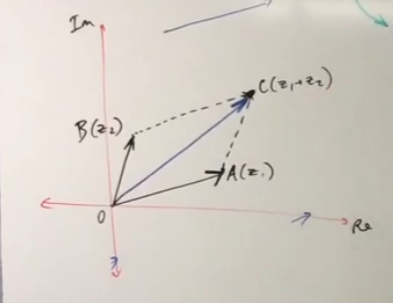 Im
C(z₁+z₂)
B(z₂)
A(z₁)
O
Re